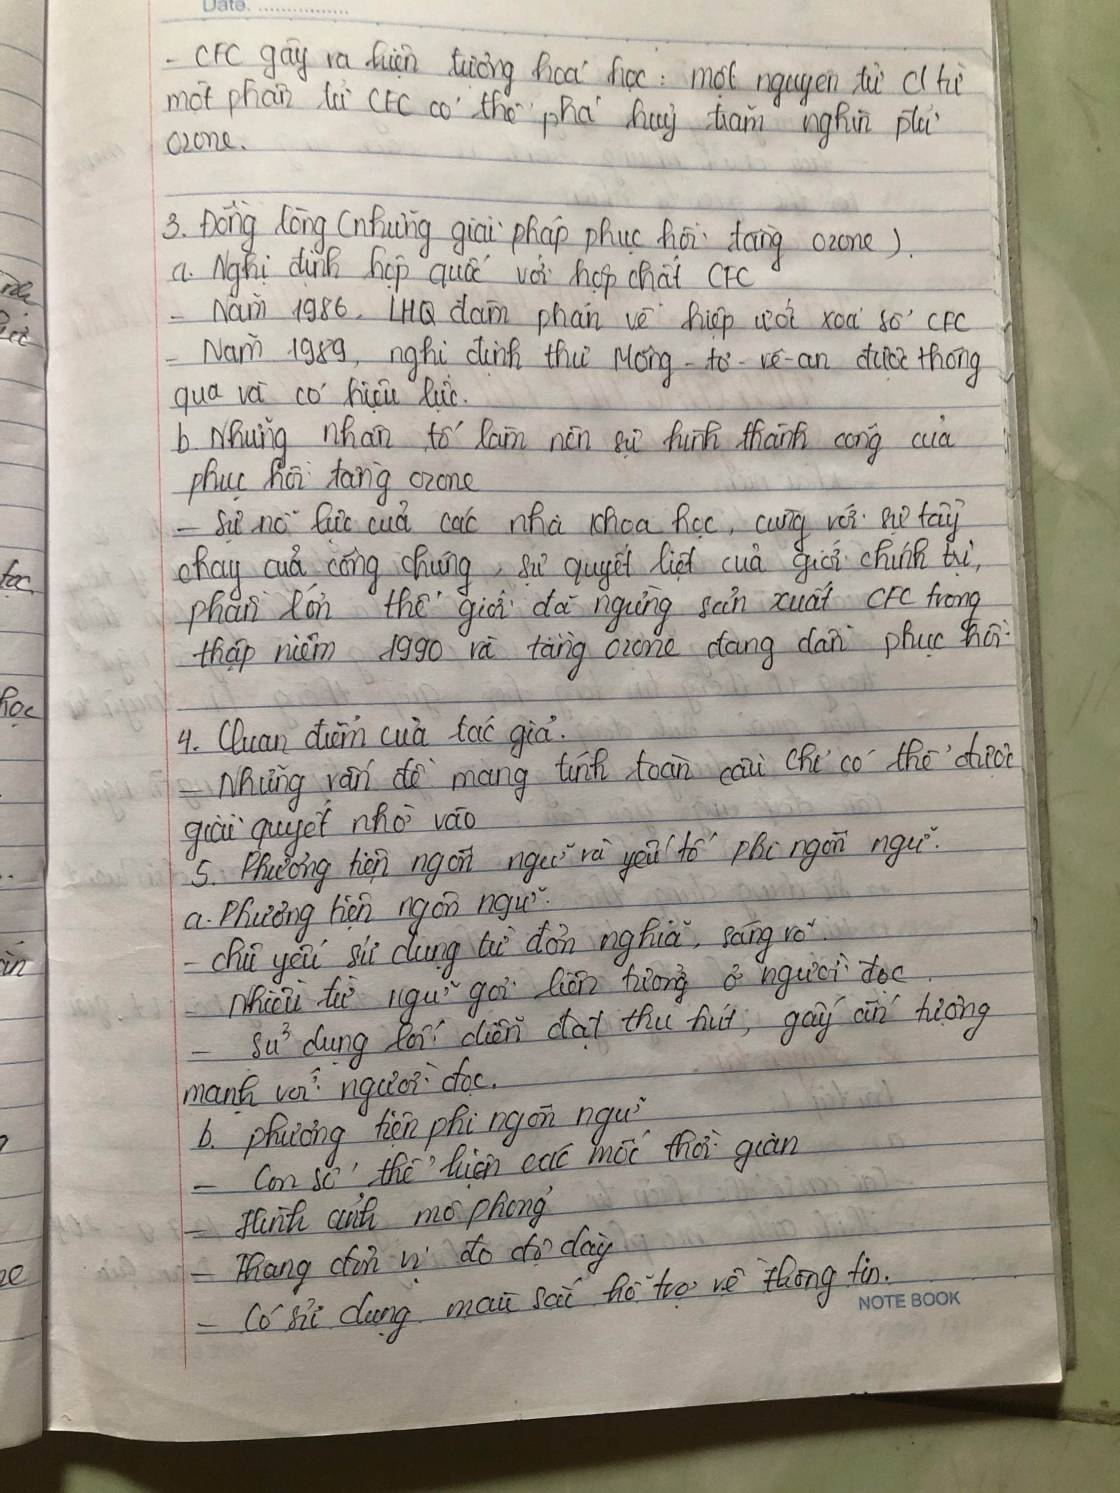 Date. ................
- CFC gây ra hiện tượng hoá học: một nguyên tử Cl từ
một phân tử CFC có thể phá huỷ trăm nghìn ptử
ozone.
3. Đồng lòng (những giải pháp phục hồi tầng ozone).
a. Nghị định hợp quốc với hợp chất CFC
- Năm 1986, LHQ đàm phán về hiệp ước xoá sổ CFC
- Năm 1989, nghị định thư Mông-tơ-rê-an được thông
qua và có hiệu lực.
b. Những nhân tố làm nên sự hình thành công của
phục hồi tầng ozone
- Sự nỗ lực của các nhà khoa học, cùng với sự tẩy
chay của công chúng, sự quyết liệt của giới chính trị,
phần lớn thế giới đã ngừng sản xuất CFC trong
thập niêm 1990 và tầng ozone đang dần phục hồi.
4. Quan điểm của tác giả.
- Những vấn đề mang tính toàn cầu chỉ có thể được
giải quyết nhờ vào
5. Phương tiện ngôn ngữ và yếu tố phi ngôn ngữ.
a. Phương tiện ngôn ngữ.
- chủ yếu sử dụng từ đơn nghĩa, sáng rõ.
- Nhiều từ ngữ gợi liên tưởng ở người đọc.
- Sử dụng lối diễn đạt thu hút, gây ấn tượng
mạnh với người đọc.
b. phương tiện phi ngôn ngữ
- Con số thể hiện các mốc thời gian
- Hình ảnh mô phỏng
- Thang đơn vị đo độ dày
- Có sử dụng màu sắc hỗ trợ về thông tin.
NOTE BOOK